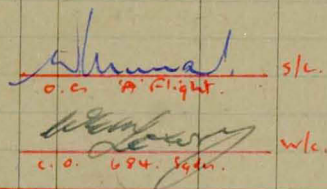 S/L.
O.C. 'A' Flight.
W/C.
C.O. 684. Sqdn.